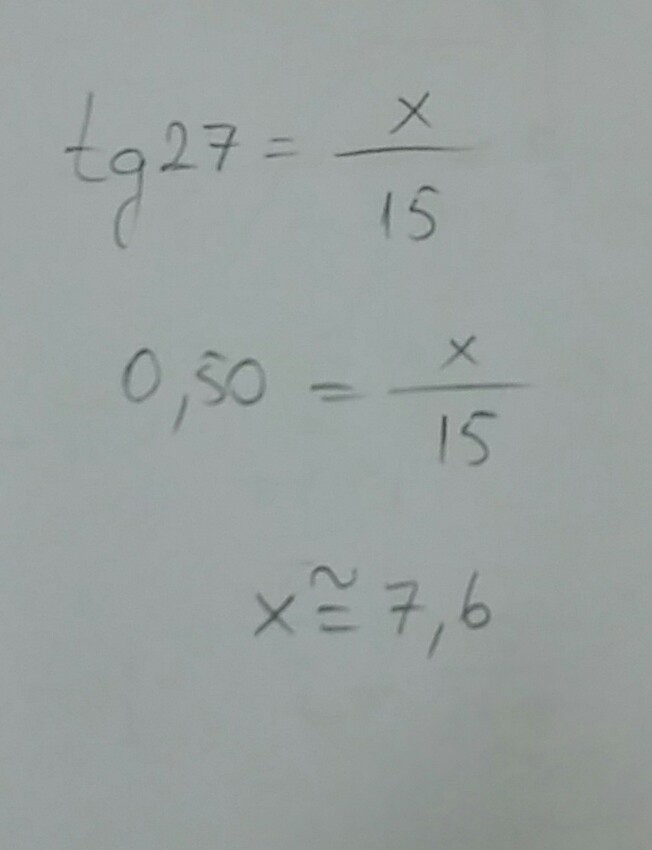 tg27 = x/15
0,50 = x/15
x ≅ 7,6